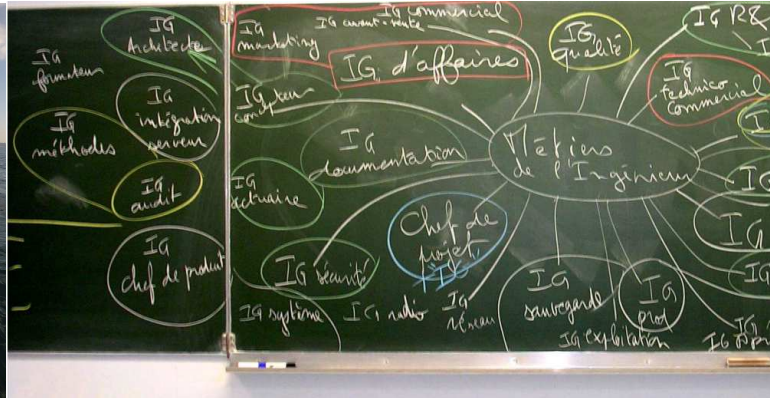 IG
formateur
IG
Architecte
IG
intégration
serveur
IG
méthodes
IG
audit
IG
chef de produit
IG
marketing
IG avant-vente
IG commercial
IG d'affaires
IG
concepteur
IG
documentation
IG
actuaire
IG sécurité
IG système
IG radio
IG
réseau
Chef de
projet
IG
qualité
Métiers
de l'Ingénieur
IG R&
IG
technico
commercial
IG
sauvegarde
IG
prod
IG exploitation
IG
IG
IG
IG
IG